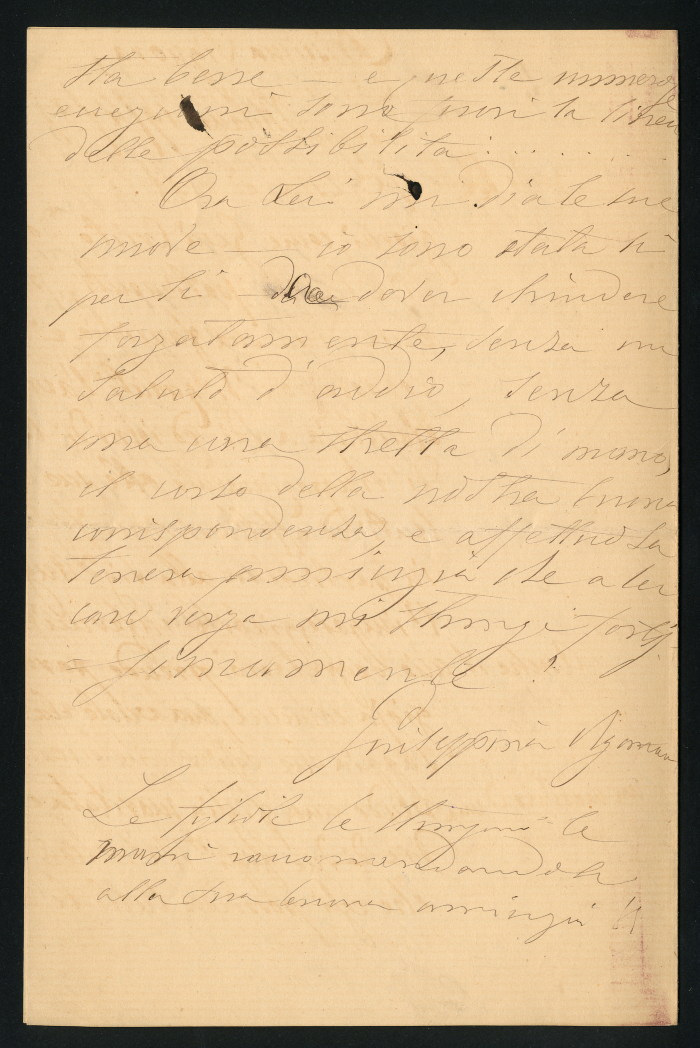 sta bene — e queste numerose
eccezioni sono fuori la linea
delle possibilità. . . . . .
Ora Lei mi dia le sue
nuove — io sono stata lì
per lì dover chiudere
forzatamente, senza un
saluto d'addio, senza
una stretta di mano,
il corso della nostra buona
corrispondenza, e affettuosa
tenera amicizia che a lei
mi stringe forti
= ssimamente!
Giuseppina
Le figliole le stringono le
mani raccomandandosi
alla sua buona amicizia